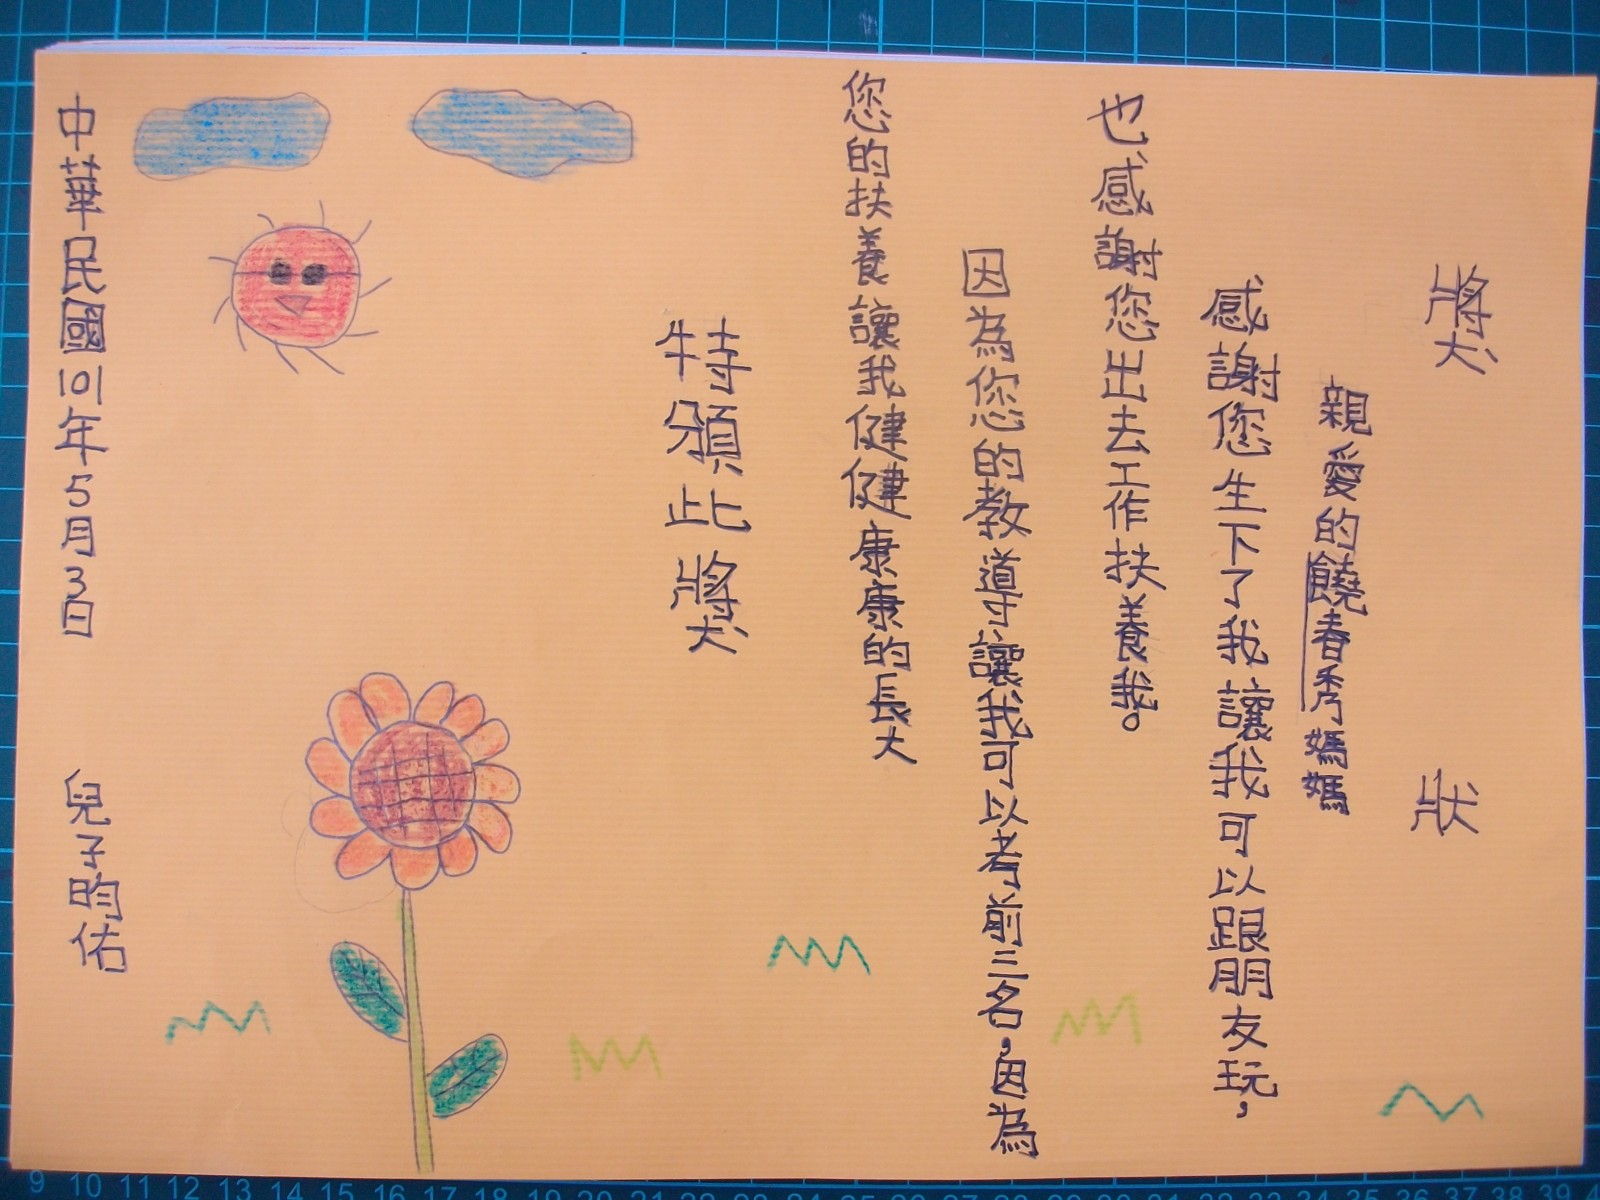 獎狀
親愛的饒春秀媽媽
感謝您生下了我讓我可以跟朋友玩，
也感謝您出去工作扶養我。
因為您的教導讓我可以考前三名，因為
您的扶養讓我健健康康的長大
特頒此獎
中華民國101年5月3日 兒子昀佑
9 10 11 12 13 14 15 16 17 18 19 20 21 22 23 24 25 26 27 28 29 30 31 32 33 34 35 36 37 38 39